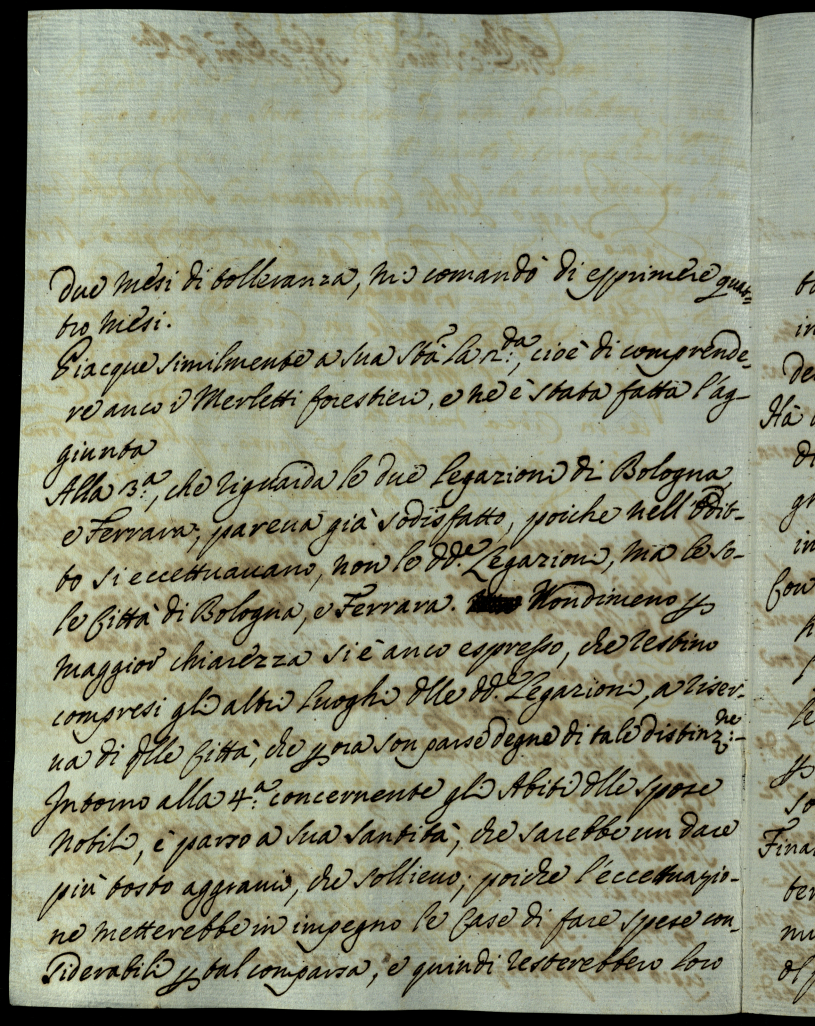 Due mesi di tolleranza, mi comandò di esprimere quat=
tro mesi.
Piacque similmente a sua Stà la 2.da, cioè di comprende=
re anco i Merletti forestieri, e ne è stata fatta l'ag-
giunta
Alla 3.a, che riguarda le due Legazioni di Bologna,
e Ferrara, pareva già sodisfatto, poiche nell'Edit-
to si eccettuavano, non le dd.e Legazioni, ma le so-
le Città di Bologna, e Ferrara. Nondimeno p
maggior chiarezza si è anco espresso, che restino
compresi gli altri luoghi dlle dd.e Legazioni, a riser-
va di qlle Città, che p ora son parse degne di tale distinz.ne
Intorno alla 4.a concernente gli Abiti dlle spose
Nobili, è parso a Sua Santità, che sarebbe un dare
più tosto aggravio, che sollievo; poiche l'eccettuazio-
ne metterebbe in impegno le Case di fare spese con-
siderabili p tal comparsa, e quindi resterebbero loro